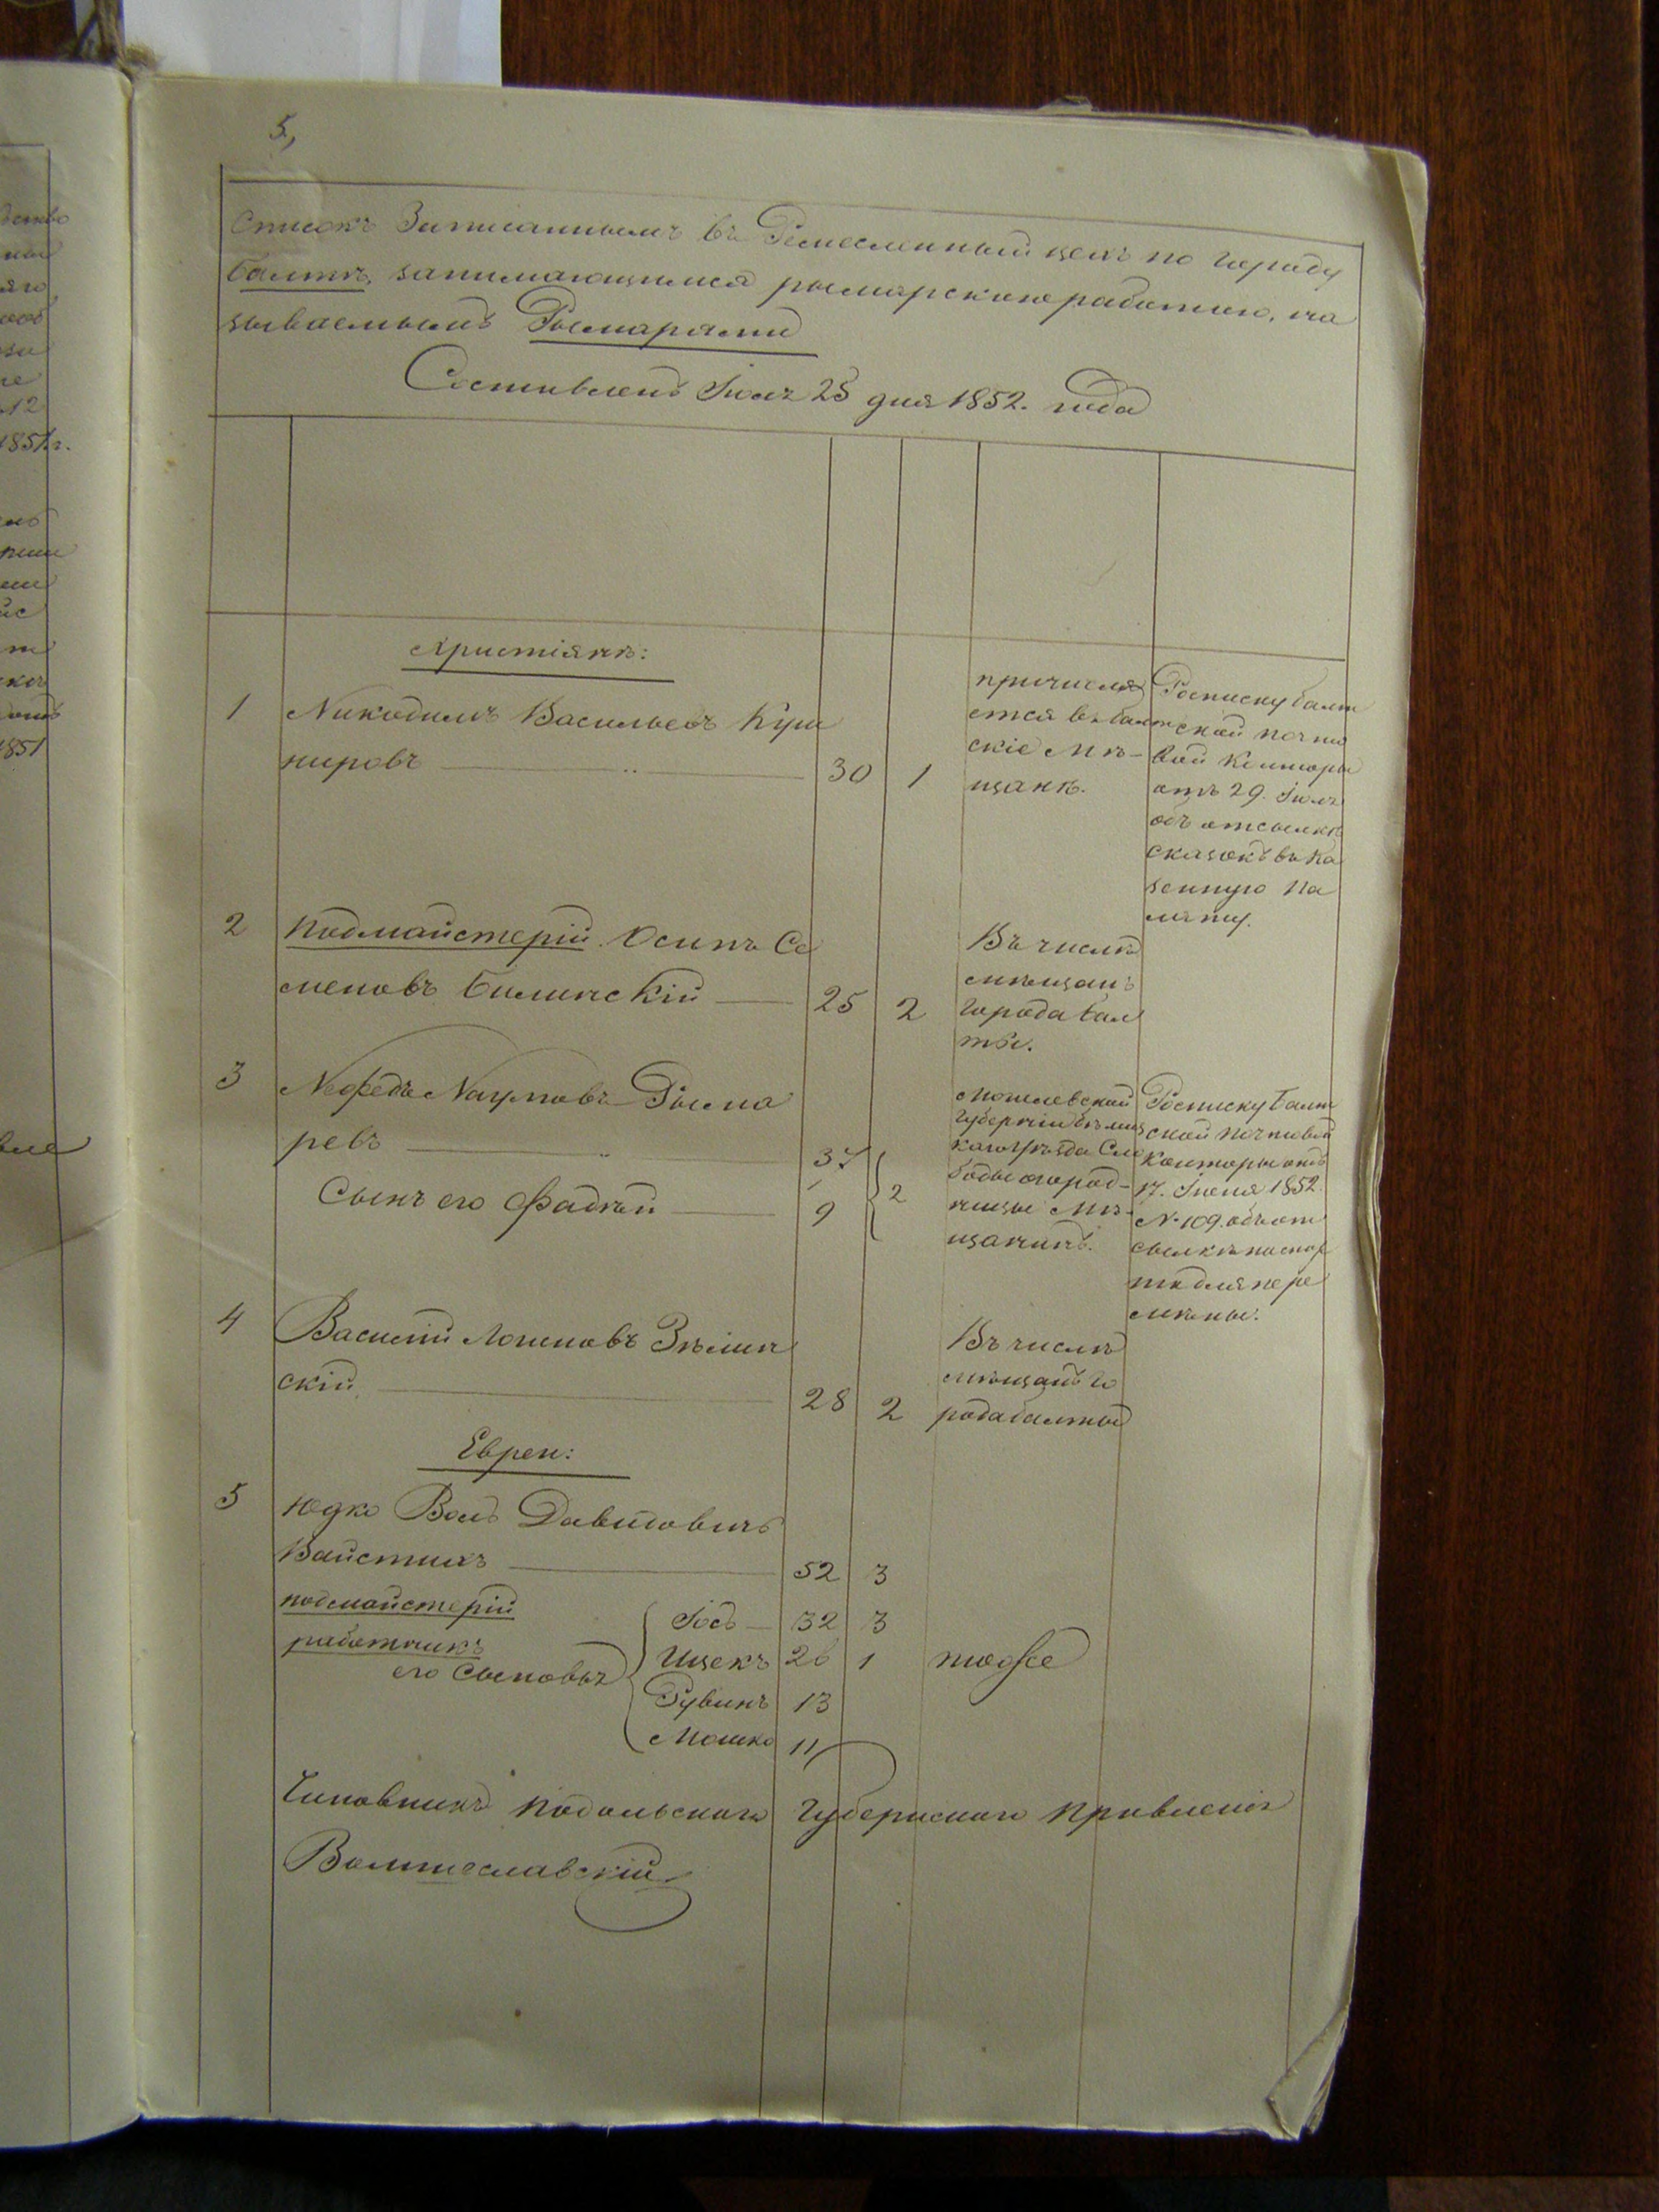 5,
Списокъ Записаннымъ въ Ремесленный цехъ по городу
Балтѣ, занимающимся рымарскою работою, на
зываемымъ Рымарями
Составленъ Іюля 25 дня 1852. года
Христіянѣ:
1 Никодимъ Васильевъ Куш
нировъ 30 1
причисля
ется въ балт
скіе Мѣ-
щанѣ.
Росписку балт
ской почто
вой Конторы
отъ 29. Іюля
объ отсылкѣ
сказокъ въ Ка
зенную Па
лату.
2 Подмайстерій Осипъ Се
меновъ Билинскій 25 2
Въ числѣ
мѣщанъ
города Бал
ты.
3 Нефедъ Наумовъ Рыма
ревъ 37
Сынъ его Фадѣй 9 2
Могилевской
Губерніи
уѣзда Сло
боды
Мѣ-
щанинъ.
Росписку Балт
ской почтовой
Конторы отъ
17. Іюня 1852.
№ 109. объ от
сылкѣ паспор
та для пере
мѣны.
4 Василій Логиновъ Зѣлин
скій 28 2
Въ числѣ
мѣщанъ го
рода балты
Евреи:
5 Юдко Волъ Давидовичъ
Вайстихъ 52 3
подмайстерій Іосъ 32 3
работникъ Ицекъ 26 1 тоже
его Сыновья Рувинъ 13
Мошко 11
Чиновникъ Подольскаго Губернскаго Правленія